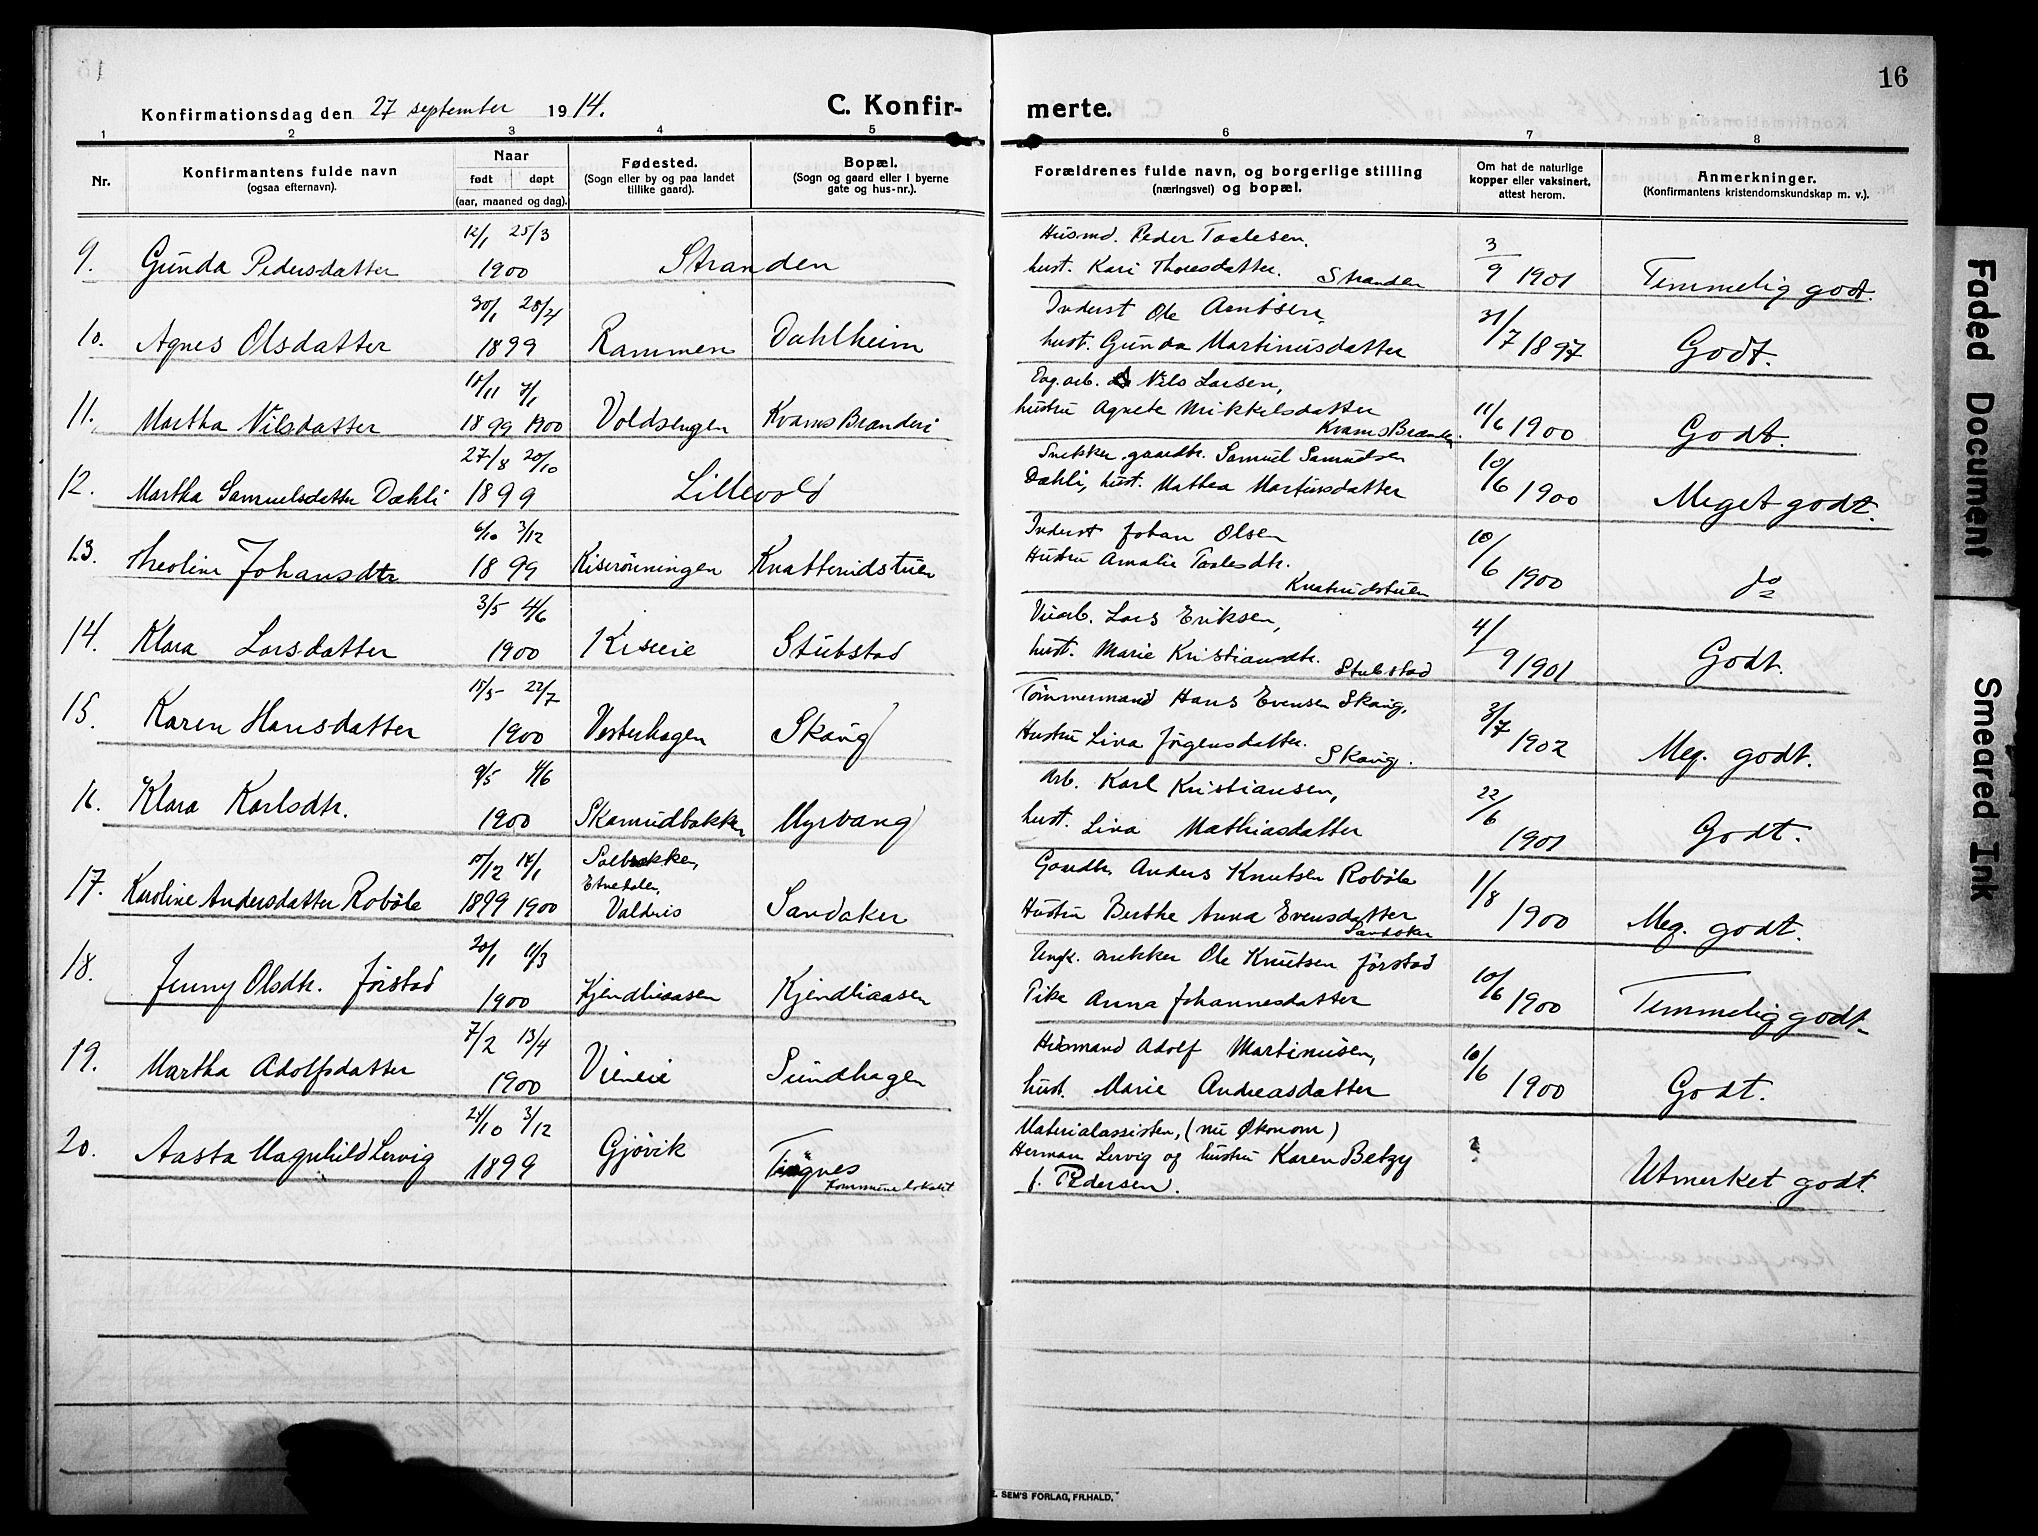 16
Konfirmationsdag den 27 september 1914.
C. Konfirmerte.
1 2 3 4 5 6 7 8
Nr.
Konfirmantens fulde navn
(ogsaa efternavn).
Naar
født døpt
(aar, maaned og dag).
Fødested.
(Sogn eller by og paa landet
tillike gaard).
Bopæl.
(Sogn og gaard eller i byerne
gate og hus-nr.).
Forældrenes fulde navn, og borgerlige stilling
(næringsvei) og bopæl.
Om hat de naturlige
kopper eller vaksinert,
attest herom.
Anmerkninger.
(Konfirmantens kristendomskundskap m. v.).
9. Gunda Pedersdatter
12/1 25/3
1900
Stranden
Husmd. Peder Taalesen,
hust. Kari Thoresdatter. Stranden
3/9 1901
Temmelig godt.
10. Agnes Olsdatter
30/1 28/4
1899
Rammen
Dahlheim
Inderst Ole Arntsen,
hust. Gunda Martinusdatter
31/7 1897
Godt.
11. Martha Nilsdatter
18/11 7/1
1899 1900
Voldsengen
Kvams Brænderi
Dag.arb. Nils Larsen,
hustru Agnete Mikkelsdatter
Kvams Brænderi
11/6 1900
Godt.
12. Martha Samuelsdatter Dæhli
27/8 20/10
1899
Lillevold
Snekker, gaardbr. Samuel Samuelsen
Dæhli, hust. Mathea Martinsdatter
10/6 1900
Meget godt.
13. Theoline Johansdtr
6/10 3/12
1899
Kiserønningen
Knatterudstuen
Inderst Johan Olsen
Hustru Amalie Taalesdtr.
Knatrudstuen
10/6 1900
do
14. Klara Larsdatter
3/5 4/6
1900
Kiseeie
Stubstad
Lars Eriksen,
hust. Marie Kristiansdtr. Stubstad
4/9 1901
Godt.
15. Karen Hansdatter
15/5 22/7
1900
Vesterhagen
Skaug
Tømmermand Hans Evensen Skaug,
Hustru Lina Jørgensdatter. Skaug.
3/7 1902
Meg. godt.
16. Klara Karlsdtr.
9/5 4/6
1900
Skarrudbakken
Myrvang
Arb. Karl Kristiansen,
hust. Lina Mathiasdatter
22/6 1901
Godt.
17. Karoline Andersdatter Robøle
15/12 14/1
1899 1900
Solbrekken,
Etnedalen,
Valdris
Sandaker
Gaardbr. Anders Knutsen Robøle
Hustru Berthe Anna Evensdatter
Sandaker
1/8 1900
Meg. godt.
18. Jenny Olsdtr. Jørstad
20/1 11/3
1900
Kjendlieaasen
Kjendliaasen
Ungk. snekker Ole Knutsen Jørstad
Pike Anna Johannesdatter
10/6 1900
Temmelig godt.
19. Martha Adolfsdatter
7/2 13/4
1900
Vieneie
Sundhagen
Husmand Adolf Martinusen,
hust. Marie Andreasdatter
10/6 1900
Godt.
20. Aasta Magnhild Lervig
24/10 3/12
1899
Gjøvik
Tingnes
Kommunelokalet
Materialassistent, (nu Økonom)
Herman Lervig og hustru Karen Betzy
f. Pedersen.
?
Utmerket godt.
E. SEM'S FORLAG, FR.HALD.
Faded Document
Smeared Ink